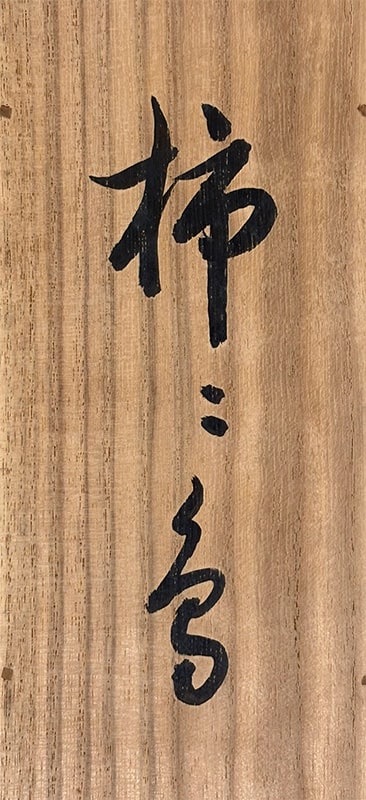 柿ニ鳥